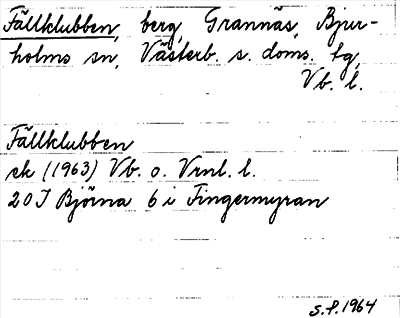 Fällklubben, berg, Grannäs, Bjur-
holms sn, Västerb. s. doms. tg,
Vb. l.
Fällklubben
ek (1963) Vb. o. Vrnl. l.
20 I Björna 6 i Fingermyran
S.P. 1964